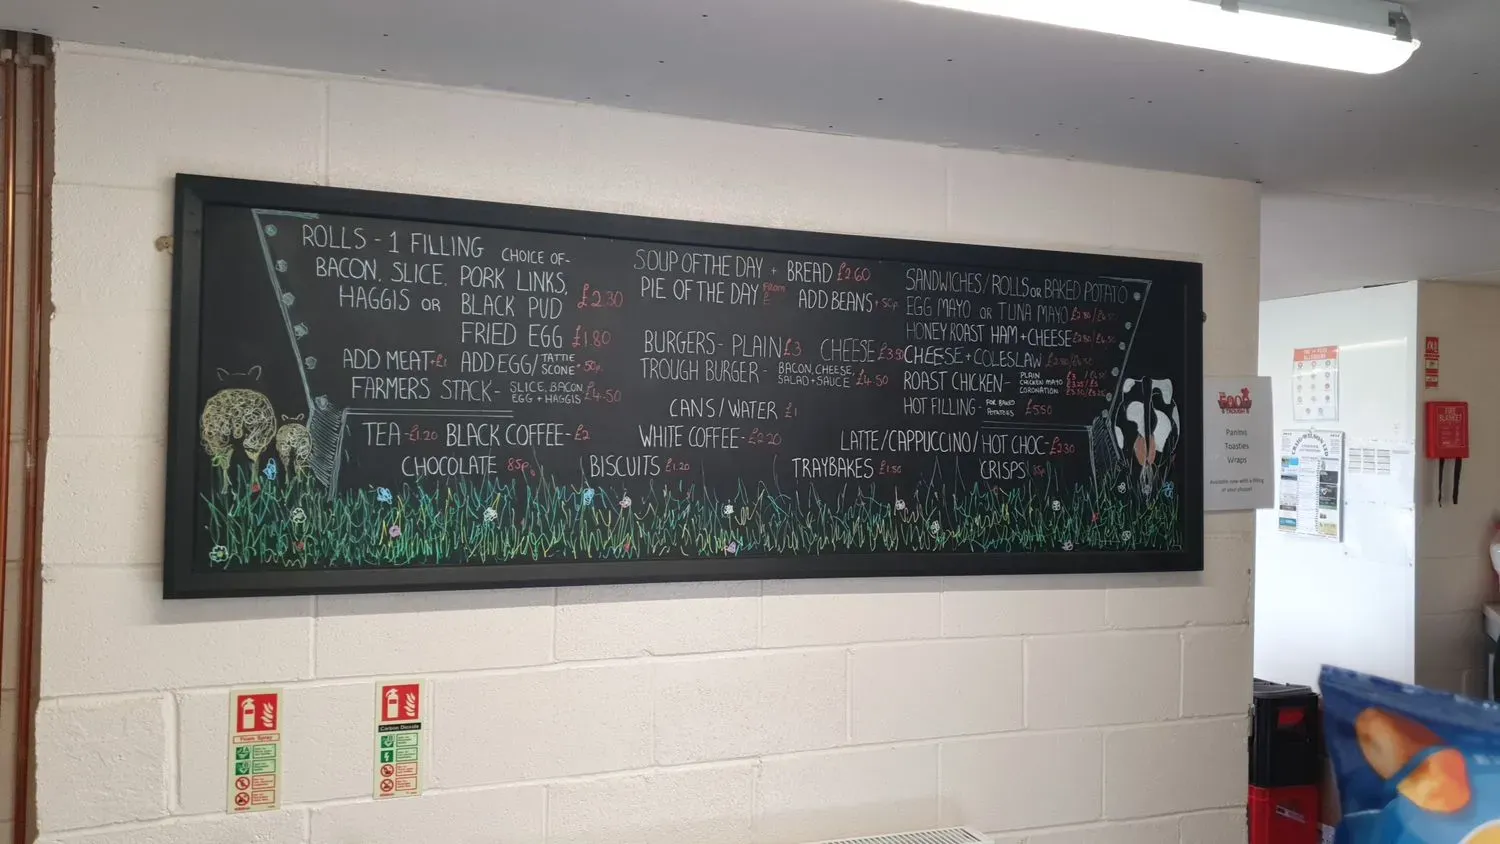 ROLLS - 1 FILLING CHOICE OF-
BACON, SLICE, PORK LINKS,
HAGGIS OR BLACK PUD £2.30
FRIED EGG £1.80
ADD MEAT +£1 ADD EGG/TATTIE SCONE + 50p
FARMERS STACK - SLICE, BACON £4.50
EGG + HAGGIS
SOUP OF THE DAY + BREAD £2.60
PIE OF THE DAY FROM £ ADD BEANS + 50p
BURGERS - PLAIN £3 CHEESE £3.30
TROUGH BURGER - BACON, CHEESE,
SALAD + SAUCE £4.50
CANS/WATER £1
SANDWICHES/ROLLS OR BAKED POTATO
EGG MAYO OR TUNA MAYO £2.80/£4.50
HONEY ROAST HAM + CHEESE £2.80/£4.50
CHEESE + COLESLAW £2.80/£4.50
ROAST CHICKEN - PLAIN £3 / £4.50
CHICKEN MAYO £3.25/£5
CORONATION £3.50/£5.25
HOT FILLING - FOR BAKED
POTATOES £5.50
TEA - £1.20 BLACK COFFEE - £2 WHITE COFFEE - £2.20 LATTE/CAPPUCCINO/HOT CHOC - £2.30
CHOCOLATE 85p BISCUITS £1.20 TRAYBAKES £1.50 CRISPS 85p
FOOD
TROUGH
Paninis
Toasties
Wraps
Available now with a filling
of your choice!
CRAIG WILSON LTD
FIRE
BLANKET
Foam Spray
Carbon Dioxide